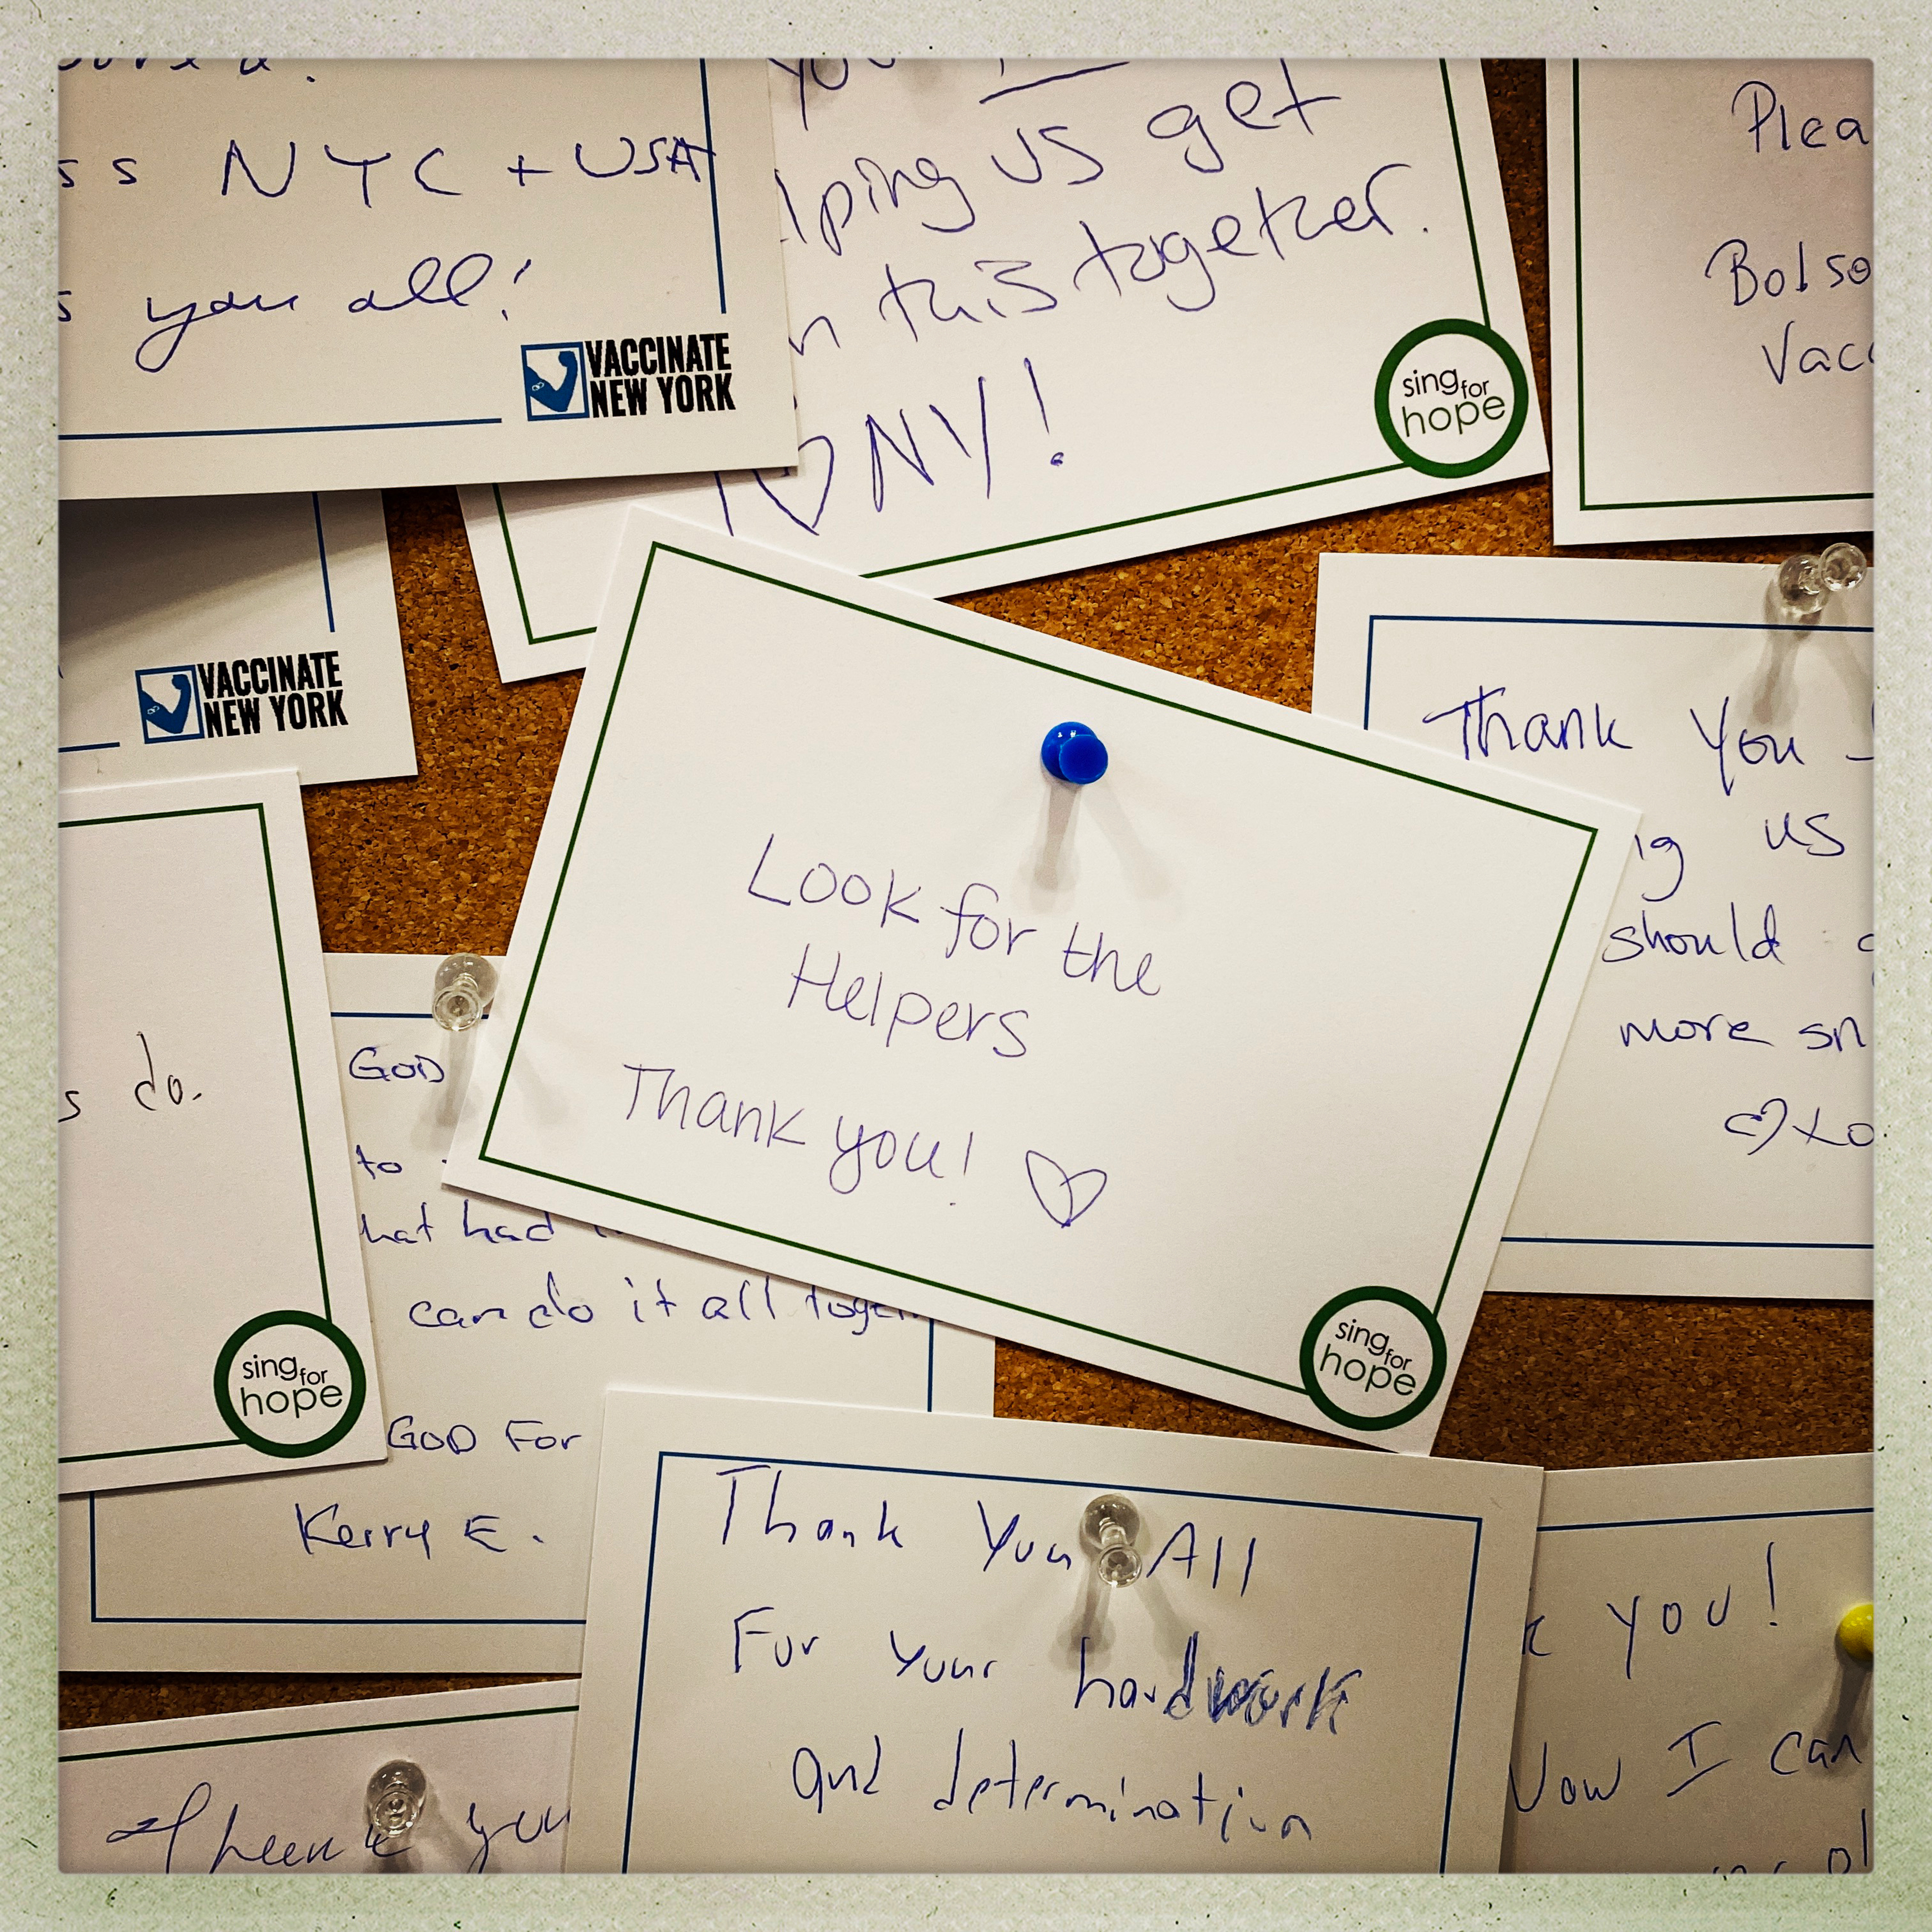 ss NYC + USA
s you all!
VACCINATE
NEW YORK
you
lping us get
n this together.
I ♡ NY!
sing for
hope
Plea
Bolso
Vacc
VACCINATE
NEW YORK
Thank You
ng us
should
more sn
♡ Lo
Look for the
Helpers
Thank you! ♡
sing for
hope
s do.
sing for
hope
GOD
to
hat had
can do it all toge
GOD For
Kerry E.
Thank You All
For your hardwork
and determination
k you!
Now I can
Thank you